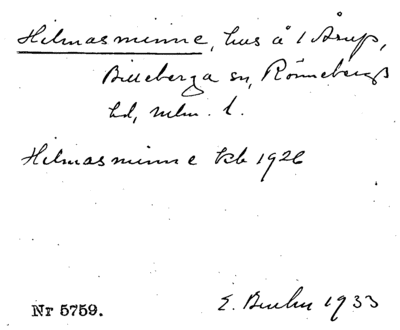 Hilmasminne, hus å 1 Årup,
Billeberga sn, Rönnebergs
hd, mlm. l.
Hilmasminne kb 1926
E. Bruhn 1933
Nr 5759.